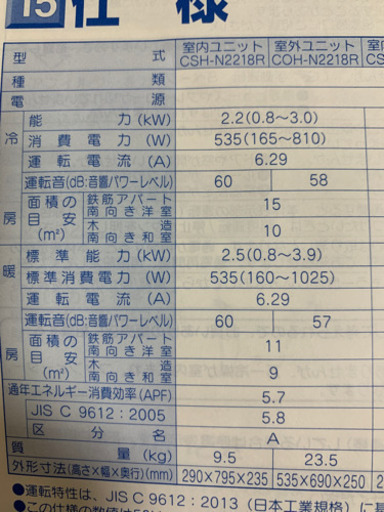 15 仕様
型式 室内ユニット 室外ユニット 室
CSH-N2218R COH-N2218R CS
種類
電源
冷房 能力(kW) 2.2(0.8～3.0)
消費電力(W) 535(165～810)
運転電流(A) 6.29
運転音(dB:音響パワーレベル) 60 58
面積の目安(m²) 鉄筋アパート南向き洋室 15
木造南向き和室 10
暖房 標準能力(kW) 2.5(0.8～3.9)
標準消費電力(W) 535(160～1025)
運転電流(A) 6.29
運転音(dB:音響パワーレベル) 60 57
面積の目安(m²) 鉄筋アパート南向き洋室 11
木造南向き和室 9
通年エネルギー消費効率(APF) 5.7
JIS C 9612:2005 5.8
区分名 A
質量(kg) 9.5 23.5
外形寸法(高さ×幅×奥行)(mm) 290×795×235 535×690×250 2
●運転特性は、JIS C 9612:2013(日本工業規格)に
●この仕様の数値は